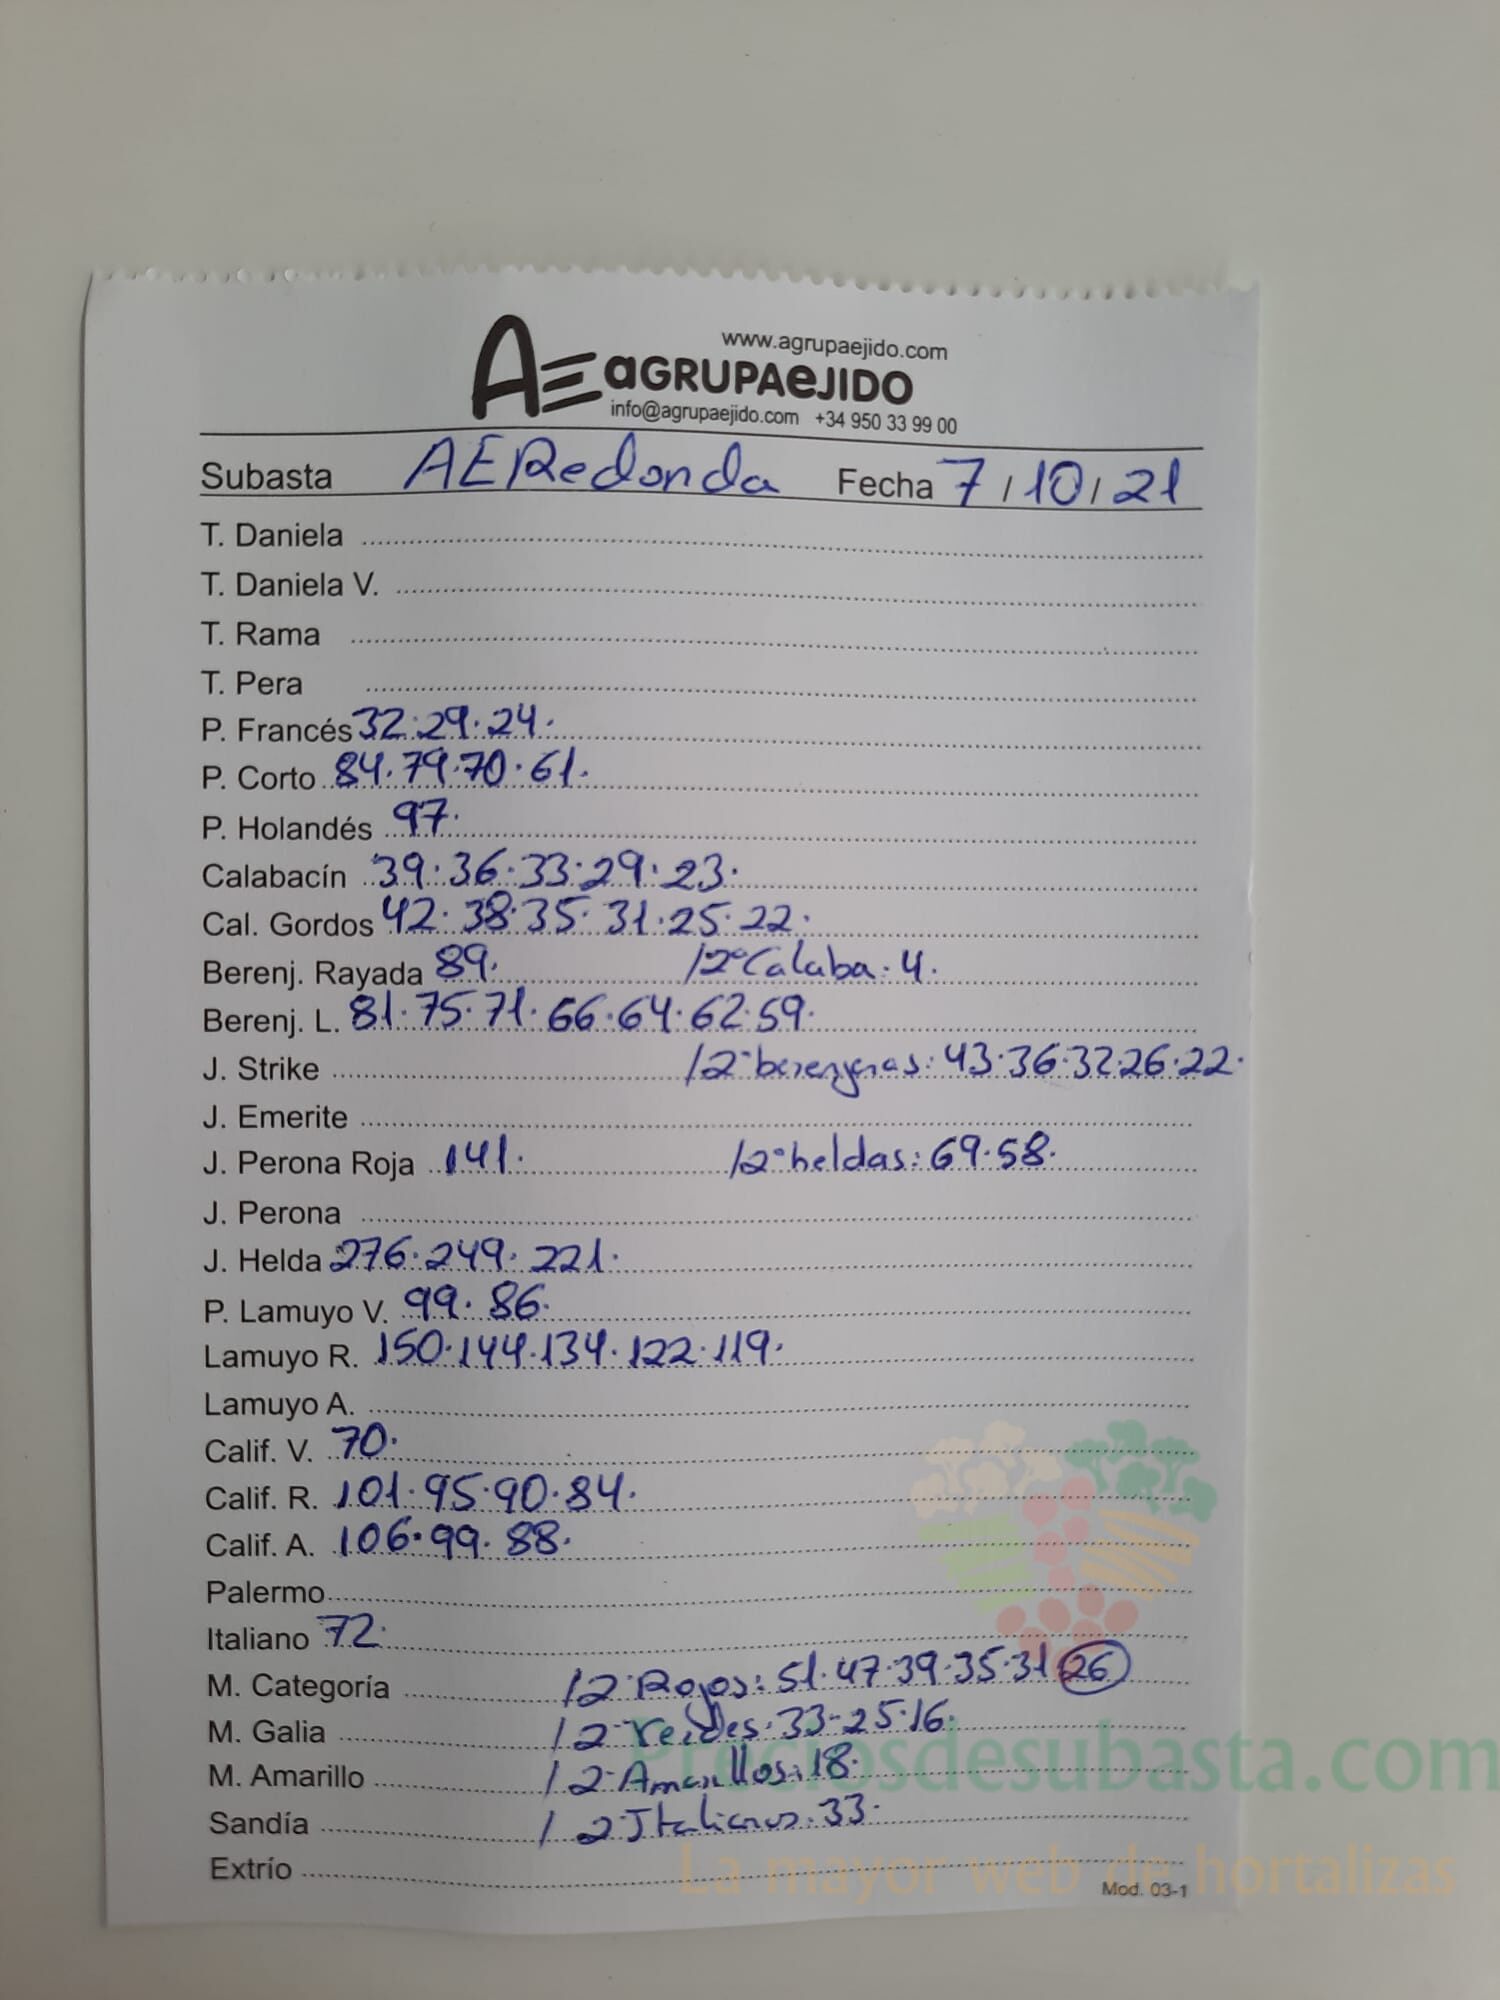 www.agrupaejido.com
AE aGRUPAeJIDO
info@agrupaejido.com +34 950 33 99 00
Subasta AERedonda Fecha 7/10/21
T. Daniela
T. Daniela V.
T. Rama
T. Pera
P. Francés 32·29·24·
P. Corto 84·79·70·61·
P. Holandés 97·
Calabacín 39·36·33·29·23·
Cal. Gordos 42·38·35·31·25·22·
Berenj. Rayada 89· /2º Calaba: 4·
Berenj. L. 81·75·71·66·64·62·59·
J. Strike /2ª berenjenas: 43·36·32·26·22·
J. Emerite
J. Perona Roja 141· /2ª heldas: 69·58·
J. Perona
J. Helda 276·249·221·
P. Lamuyo V. 99·86·
Lamuyo R. 150·144·134·122·119·
Lamuyo A.
Calif. V. 70·
Calif. R. 101·95·90·84·
Calif. A. 106·99·88·
Palermo
Italiano 72·
M. Categoría /2ª Rojos: 51·47·39·35·31 26
M. Galia /2ª Verdes: 33-25·16·
M. Amarillo /2ª Amarillos: 18·
Preciosdesubasta.com
Sandía /2ª Italianos: 33·
Extrío
La mayor web de hortalizas
Mod. 03-1